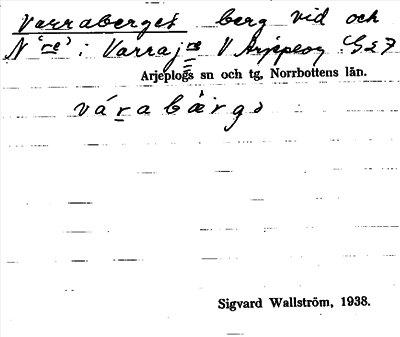 Varraberget berg vid och
N "re" i Varraj:re V Arjeplog G27
Arjeplogs sn och tg, Norrbottens län.
várabärgə
Sigvard Wallström, 1938.